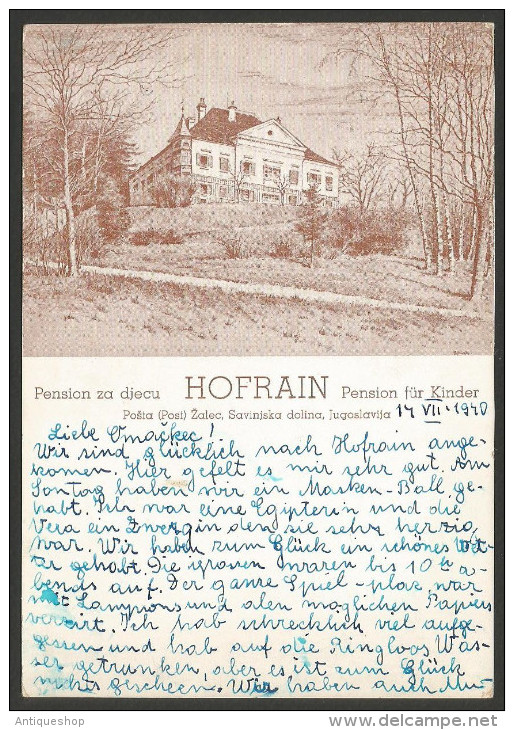 Pension za djecu HOFRAIN Pension für Kinder
Pošta (Post) Žalec, Savinjska dolina, Jugoslavija 14 VII. 1940
Liebe Omačkec!
Wir sind glücklich nach Hofrain ange-
komen. Hier gefelt es mir sehr gut. Am
Sontag haben wir ein Masken-Ball ge-
habt. Ich war eine Egipterin und die
Vera ein Zwergin den sie sehr herzig
war. Wir haben zum Glück ein schönes Wet-
ter gehabt. Die grosen waren bis 10 a-
bends auf. Der ganze Spiel-plaz war
mit Lampions und alen möglichen Papiers
verzirt. Ich hab schrecklich viel aufge-
gessen und hab auf die Ringloos Was-
ser getrunken, aber es ist zum Glück
nichts gescheen. Wir haben auch Mu-
Antiqueshop
www.delcampe.net